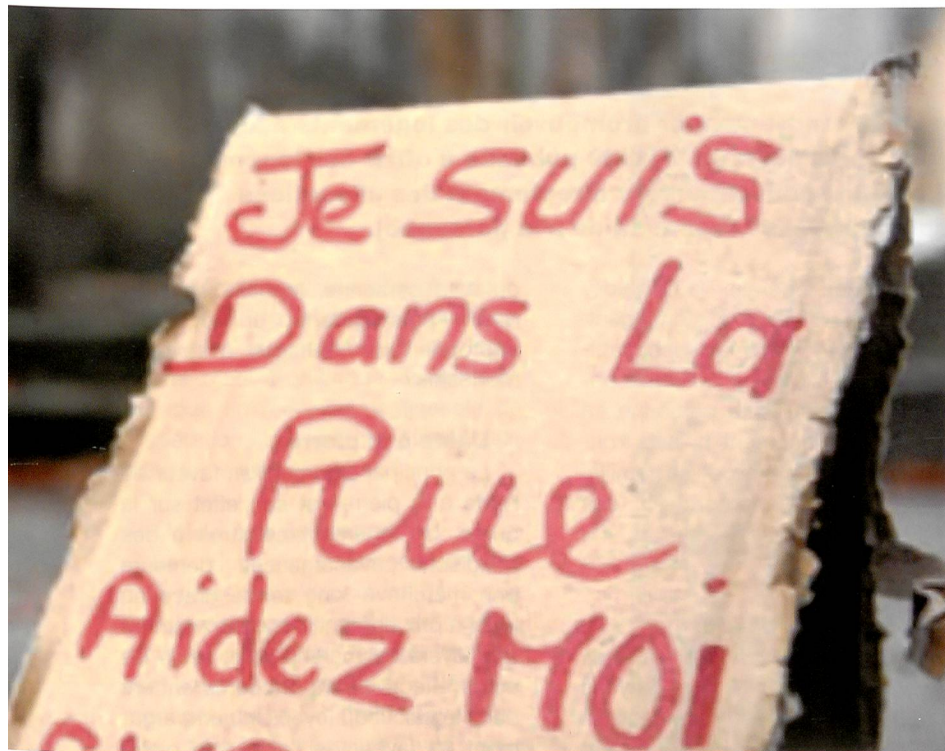 Je suis
Dans La
Rue
Aidez MOi